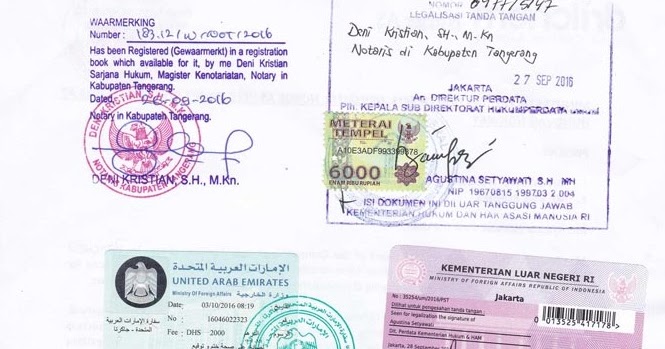 WAARMERKING
Number: 183.12/W/NOT/2016
Has been Registered (Gewaarmerkt) in a registration
book which available for it, by me Deni Kristian
Sarjana Hukum, Magister Kenotariatan, Notary in
Kabupaten Tangerang.
Dated, 26-09-2016
Notary in Kabupateh Tangerang.
DENI KRISTIAN, S.H., M.Kn
NOTARIS KABUPATEN TANGERANG
DENI KRISTIAN, S.H., M.Kn.
LEGALISASI TANDA TANGAN
Deni Kristian, SH., M.Kn
Notaris di Kabupaten Tangerang
27 SEP 2016
JAKARTA
An. DIREKTUR PERDATA
Plh. KEPALA SUB DIREKTORAT HUKUM PERDATA UMUM
METERAI
TEMPEL
A10E3ADF993399878
6000
ENAM RIBU RUPIAH
AGUSTINA SETYAWATI S.H MH
NIP 19670815 199703 2 004
ISI DOKUMEN INI DI LUAR TANGGUNG JAWAB
KEMENTERIAN HUKUM DAN HAK ASASI MANUSIA RI
الإمارات العربية المتحدة
UNITED ARAB EMIRATES
Ministry Of Foreign Affairs وزارة الخارجية
Date : 03/10/2016 08:19
No : 16046022323
Fee : DHS 2000
سفارة الإمارات العربية
المتحدة - جاكرتا
KEMENTERIAN LUAR NEGERI RI
MINISTRY OF FOREIGN AFFAIRS REPUBLIC OF INDONESIA
No : 35254/um/2016/PST
Jakarta
Dilihat untuk pengesahan tanda tangan
Seen for legalization the signature of
Agustina Setyawati
Dit. Perdata Kementerian Hukum & HAM
0 013525 417178